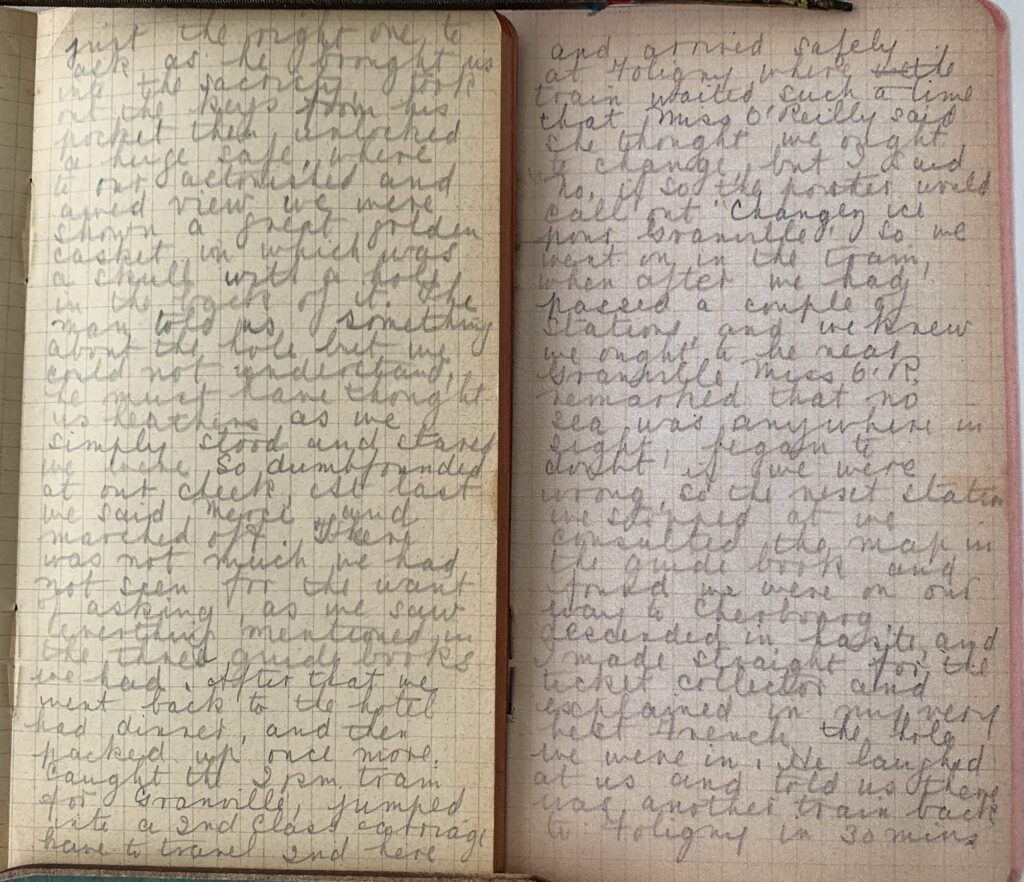 just the right one to
ask as he brought us
into the sacristy, took
out the keys from his
pocket then unlocked
a huge safe, where
to our astonished and
awed view we were
shown a great golden
casket in which was
a skull with a hole
in the of it. The
man told us something
about the hole but we
could not understand,
he must have thought
us heathens as we
simply stood and stared
we were so dumbfounded
at our cheek, At last
we said Merci and
marched off. There
was not much we had
not seen for the want
of asking, as we saw
everything mentioned in
the three guide books
we had. After that we
went back to the hotel
had dinner, and then
packed up once more.
Caught the 2 p.m. train
for Granville, jumped
into a 2nd Class carriage
have to travel 2nd here
and arrived safely
at Foligny where the
train waited such a time
that Miss O'Reilly said
she thought we ought
to change, but I said
no, if so the porter would
call out "Changez ici
pour Granville" so we
went on in the train,
when after we had
passed a couple of
stations and we knew
we ought to be near
Granville Miss O'R.
remarked that no
sea was anywhere in
sight, began to
doubt if we were
wrong, so the next station
we stopped at we
consulted the map in
the guide book and
found we were on our
way to Cherbourg,
descended in haste, and
I made straight for the
ticket collector and
explained in my very
best French the hole
we were in. He laughed
at us and told us there
was another train back
to Foligny in 30 mins